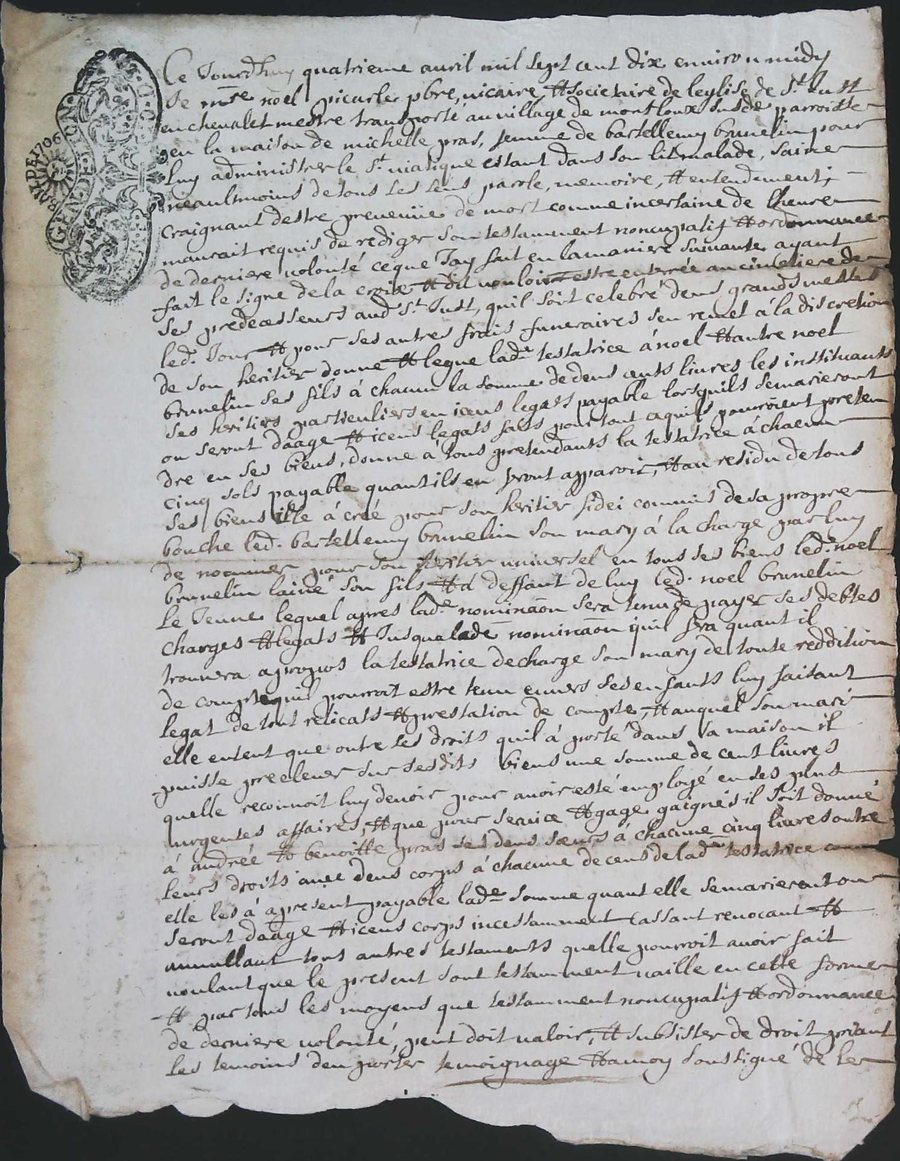 GNĀL. DE LION
Ce Jourdhuy quatrieme auril mil sept cent dix enuiron midy
Je mre noël picarle pbre, vicaire et societaire de leglise de st Just
en cheualet mestre transporté au village de montloux susde parroisse
en la maison de michelle pras, femme de bartellemy brunelin pour
luy administrer le st viatique estant dans son lit malade, saine
neaulmoins de tous ses sens parole, memoire, et entendement;
craignant destre preuenüe de mort comme incertaine de lheure
mauroit requis de rediger son testament noncupatif et ordonnance
de derniere volonté ce que Jay fait en la maniere suiuante ayant
fait le signe de la croix et dit vouloir estre enterrée au cimetiere de
ses predecesseurs aud st Just, quil soit celebré deus grands messes
led. Jour et pour ses autres frais funeraires sen remet à la discretion
de son heritier donne et legue lade testatrice à noël et autre noël
brunelin ses fils à chacun la somme de deus cents liures les instituants
ses heritiers particuliers en iceus legats payable lorsquils se marieront
ou seront daage et iceus legats faits pour tout ce quils pourroient preten
dre en ses biens, donne à tous pretendants la testatrice à chacun
cinq sols payable quant ils en feront apparoir, et au residu de tous
ses biens elle à créé pour son heritier fidei commis de sa propre
bouche led. bartellemy brunelin son mary à la charge par luy
de nommer pour son heritier uniuersel en tous ses biens led. noël
brunelin lainé son fils et à deffaut de luy led. noël brunelin
le Jeune lequel apres lade nominaōn sera tenu de payer ses debtes
charges et legats et Jusqua lade nominaōn quil fera quant il
trouuera apropos la testatrice decharge son mary de toute reddition
de compte quil pourroit estre tenu enuers ses enfants luy faisant
legat de tout relicats et prestation de compte, et auquel son mari
elle entent que outre ses droits quil à porté dans sa maison il
puisse preeleuer sur sesdits biens une somme de cent liures
quelle reconnoit luy deuoir pour auoir esté employé en ses plus
urgentes affaires, et que pour seruice et gage gaignés il soit donné
à andrée et benoitte pras ses deus sœurs à chacune cinq liures outre
leurs droits auec deus corps à chacune de ceus de lade testatrice comme
elle les à apresent payable lade somme quant elle se marieront ou
seront daage et iceus corps incessamment cassant reuocant et
annullant tous autres testaments quelle pourroit auoir fait
voulant que le present sont testamment vaille en cette forme
et par tous les moyens que testamment noncupatif et ordonnance
de derniere volonté, peut doit valoir, et subsister de droit priant
les temoins den porter temoignage et amoy soussigné de le